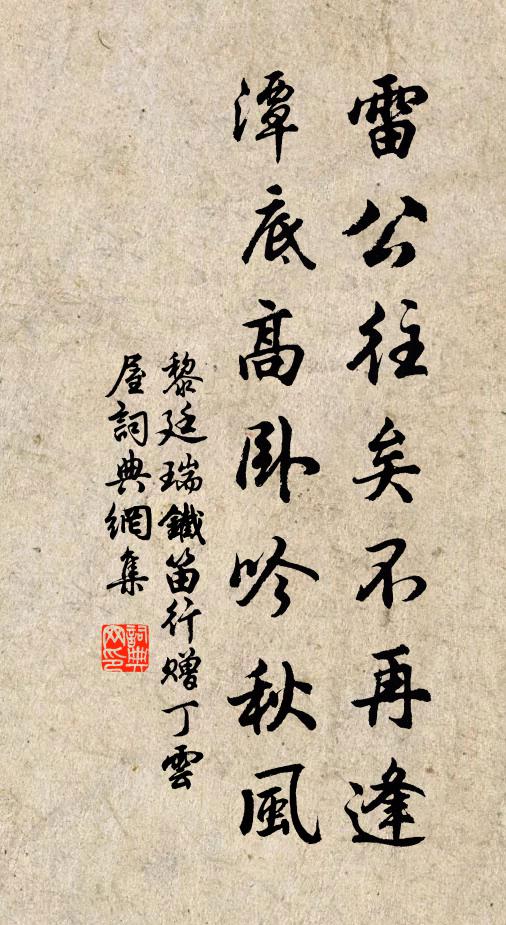 雷公往矣不再逢
潭底高臥吟秋風
黎廷瑞鐵笛行贈丁雲
屋詞典網集
詞典
网印